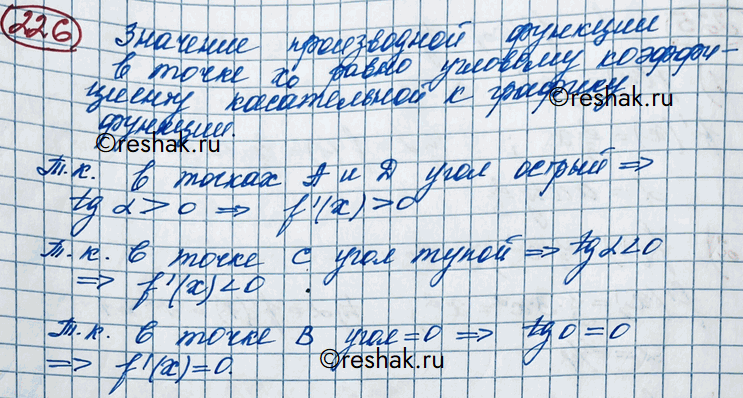 226
Значение производной функции
в точке x₀ равно угловому коэффи-
циенту касательной к графику
функции.
©reshak.ru
©reshak.ru
Т.к. в точках А и Д угол острый ⇒
tg α > 0 ⇒ f'(x) > 0
©reshak.ru
Т.к. в точке С угол тупой ⇒ tg α < 0
⇒ f'(x) < 0 .
©reshak.ru
Т.к. в точке В угол = 0 ⇒ tg 0 = 0
⇒ f'(x) = 0.
©reshak.ru